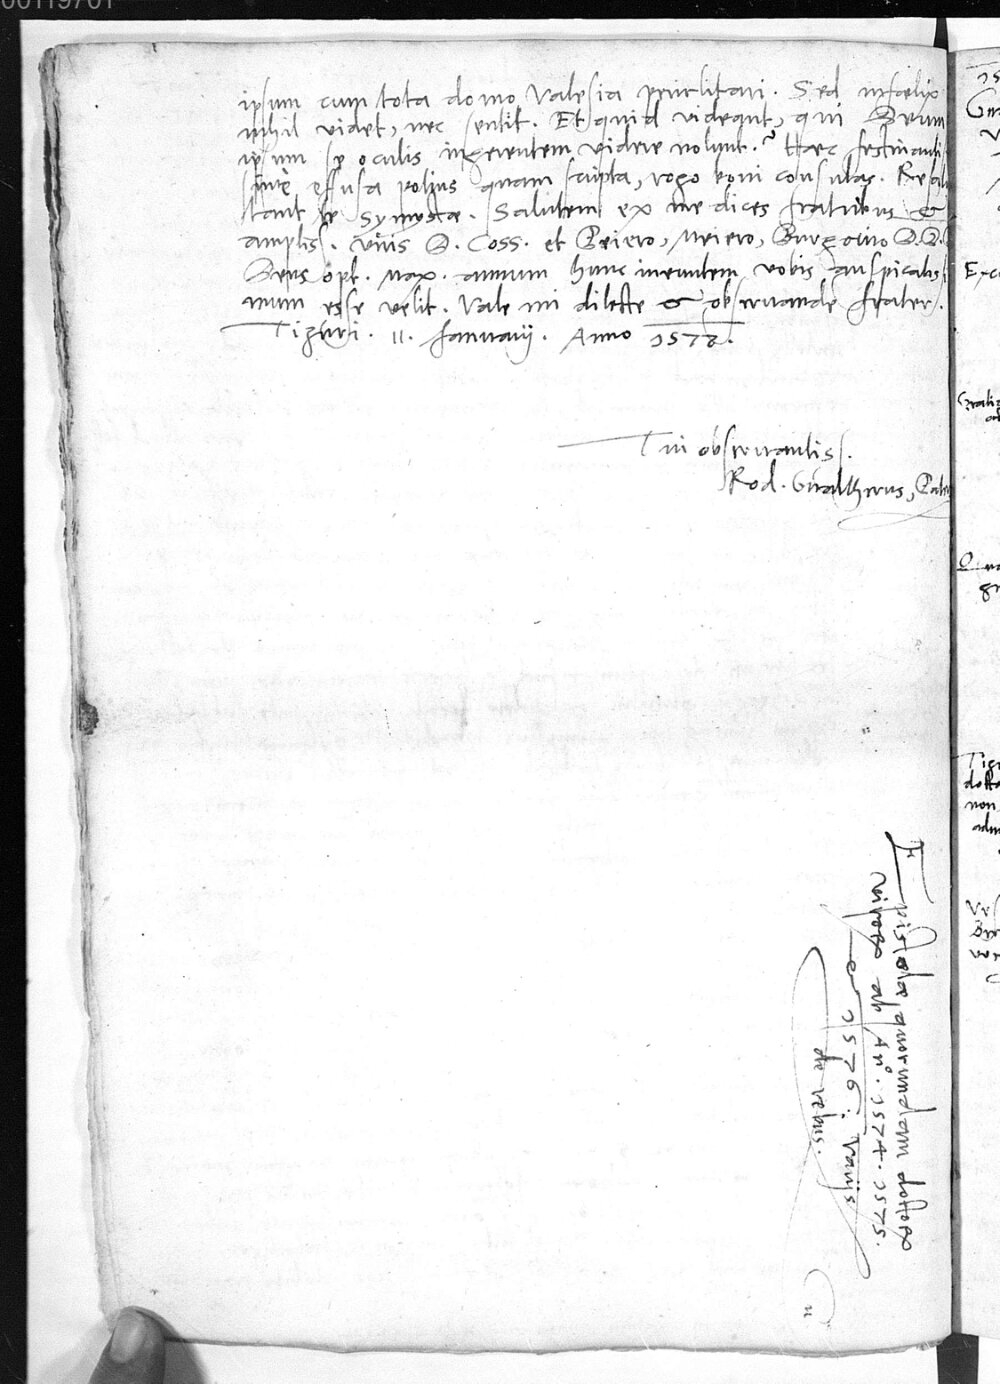 ipsum cum tota domo Valesia periclitari. Sed infœlix
nihil videt, nec sentit. Et quid videant, qui Deum
ipsum se oculis ingerentem videre nolunt? Haec festinanti
effusa potius quam scripta, rogo boni consulas. Resalu
tant te Symmystæ. Salutem ex me dices fratribus &
ampliss. viris D. Coss. et
Deus opt. max. annum hunc ineuntem vobis auspicatiss
mum esse velit. Vale mi dilecte & observande frater.
Tiguri. 11. Januarij. Anno 1578.
Tui observantiss.
Rod. Gualtherus,
Epistolæ quorundam doctorum
virorum ab Aº. 1574. 1575.
& 1576. varijs
de rebus.
15
Exc
Tig
docto
non